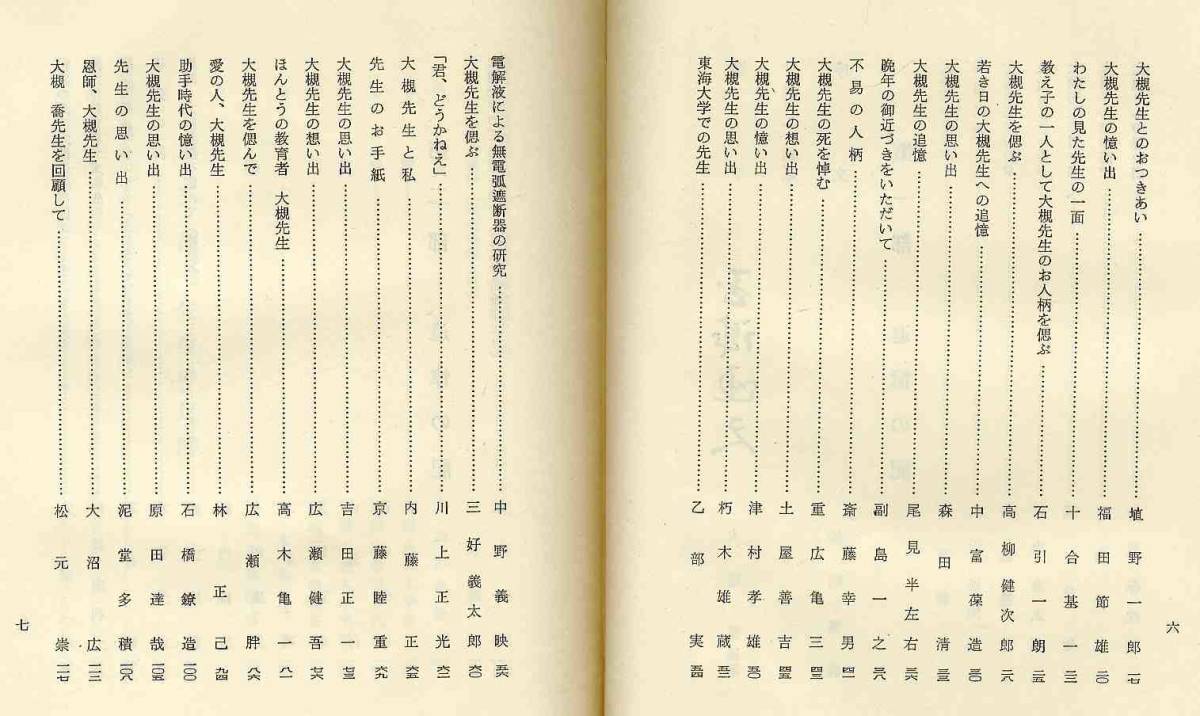 大槻先生とのおつきあい 埴野一郎 一七
大槻先生の憶い出 福田節雄 二〇
わたしの見た先生の一面 十合基一
教え子の一人として大槻先生のお人柄を偲ぶ 石引一朗 二五
大槻先生を偲ぶ 高柳健次郎 二八
若き日の大槻先生への追憶 中富葆造 三〇
大槻先生の思い出 森田清
大槻先生の追憶 尾見半左右 三六
晩年の御近づきをいただいて 副島一之 三八
不易の人柄 斎藤幸男
大槻先生の死を悼む 重広亀三
大槻先生の想い出 土屋善吉
大槻先生の憶い出 津村孝雄 五〇
大槻先生の思い出 朽木雄蔵
東海大学での先生 乙部実 五四
六
電解液による無電弧遮断器の研究 中野義映 五六
大槻先生を偲ぶ 三好義太郎 六〇
「君、どうかねえ」 川上正光
大槻先生と私 内藤正 六五
先生のお手紙 京藤睦重 六九
大槻先生の思い出 吉田正一
大槻先生の想い出 広瀬健吾 七六
ほんとうの教育者 大槻先生 高木亀一 八一
大槻先生を偲んで 広瀬胖 八六
愛の人、大槻先生 林正己 九四
助手時代の憶い出 石橋鐐造 一〇〇
大槻先生の思い出 原田達哉 一〇五
先生の思い出 泥堂多積 一〇八
恩師、大槻先生 大沼広
大槻 喬先生を回顧して 松元崇 一一七
七